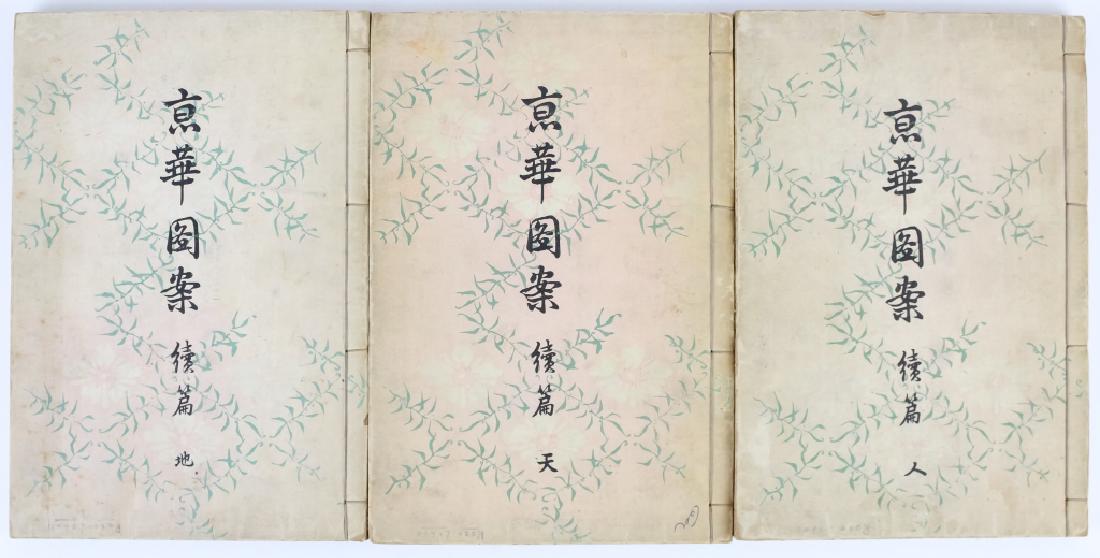 京華圖案 續篇 地
京華圖案 續篇 天
京華圖案 續篇 人